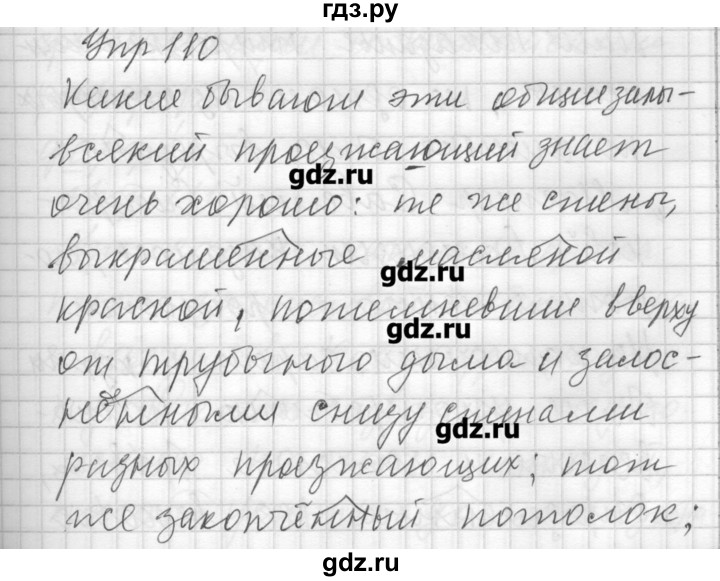 гдз.ру
Упр 110
Какие бывают эти общие залы -
всякий проезжающий знает
gdz.ru
очень хорошо: те же стены,
выкрашенные масляной
gdz.ru
краской, потемневшие вверху
gdz.ru
от трубочного дыма и залос-
нённые снизу спинами
gdz.ru
разных проезжающих; тот
же закопчённый потолок;
gdz.ru